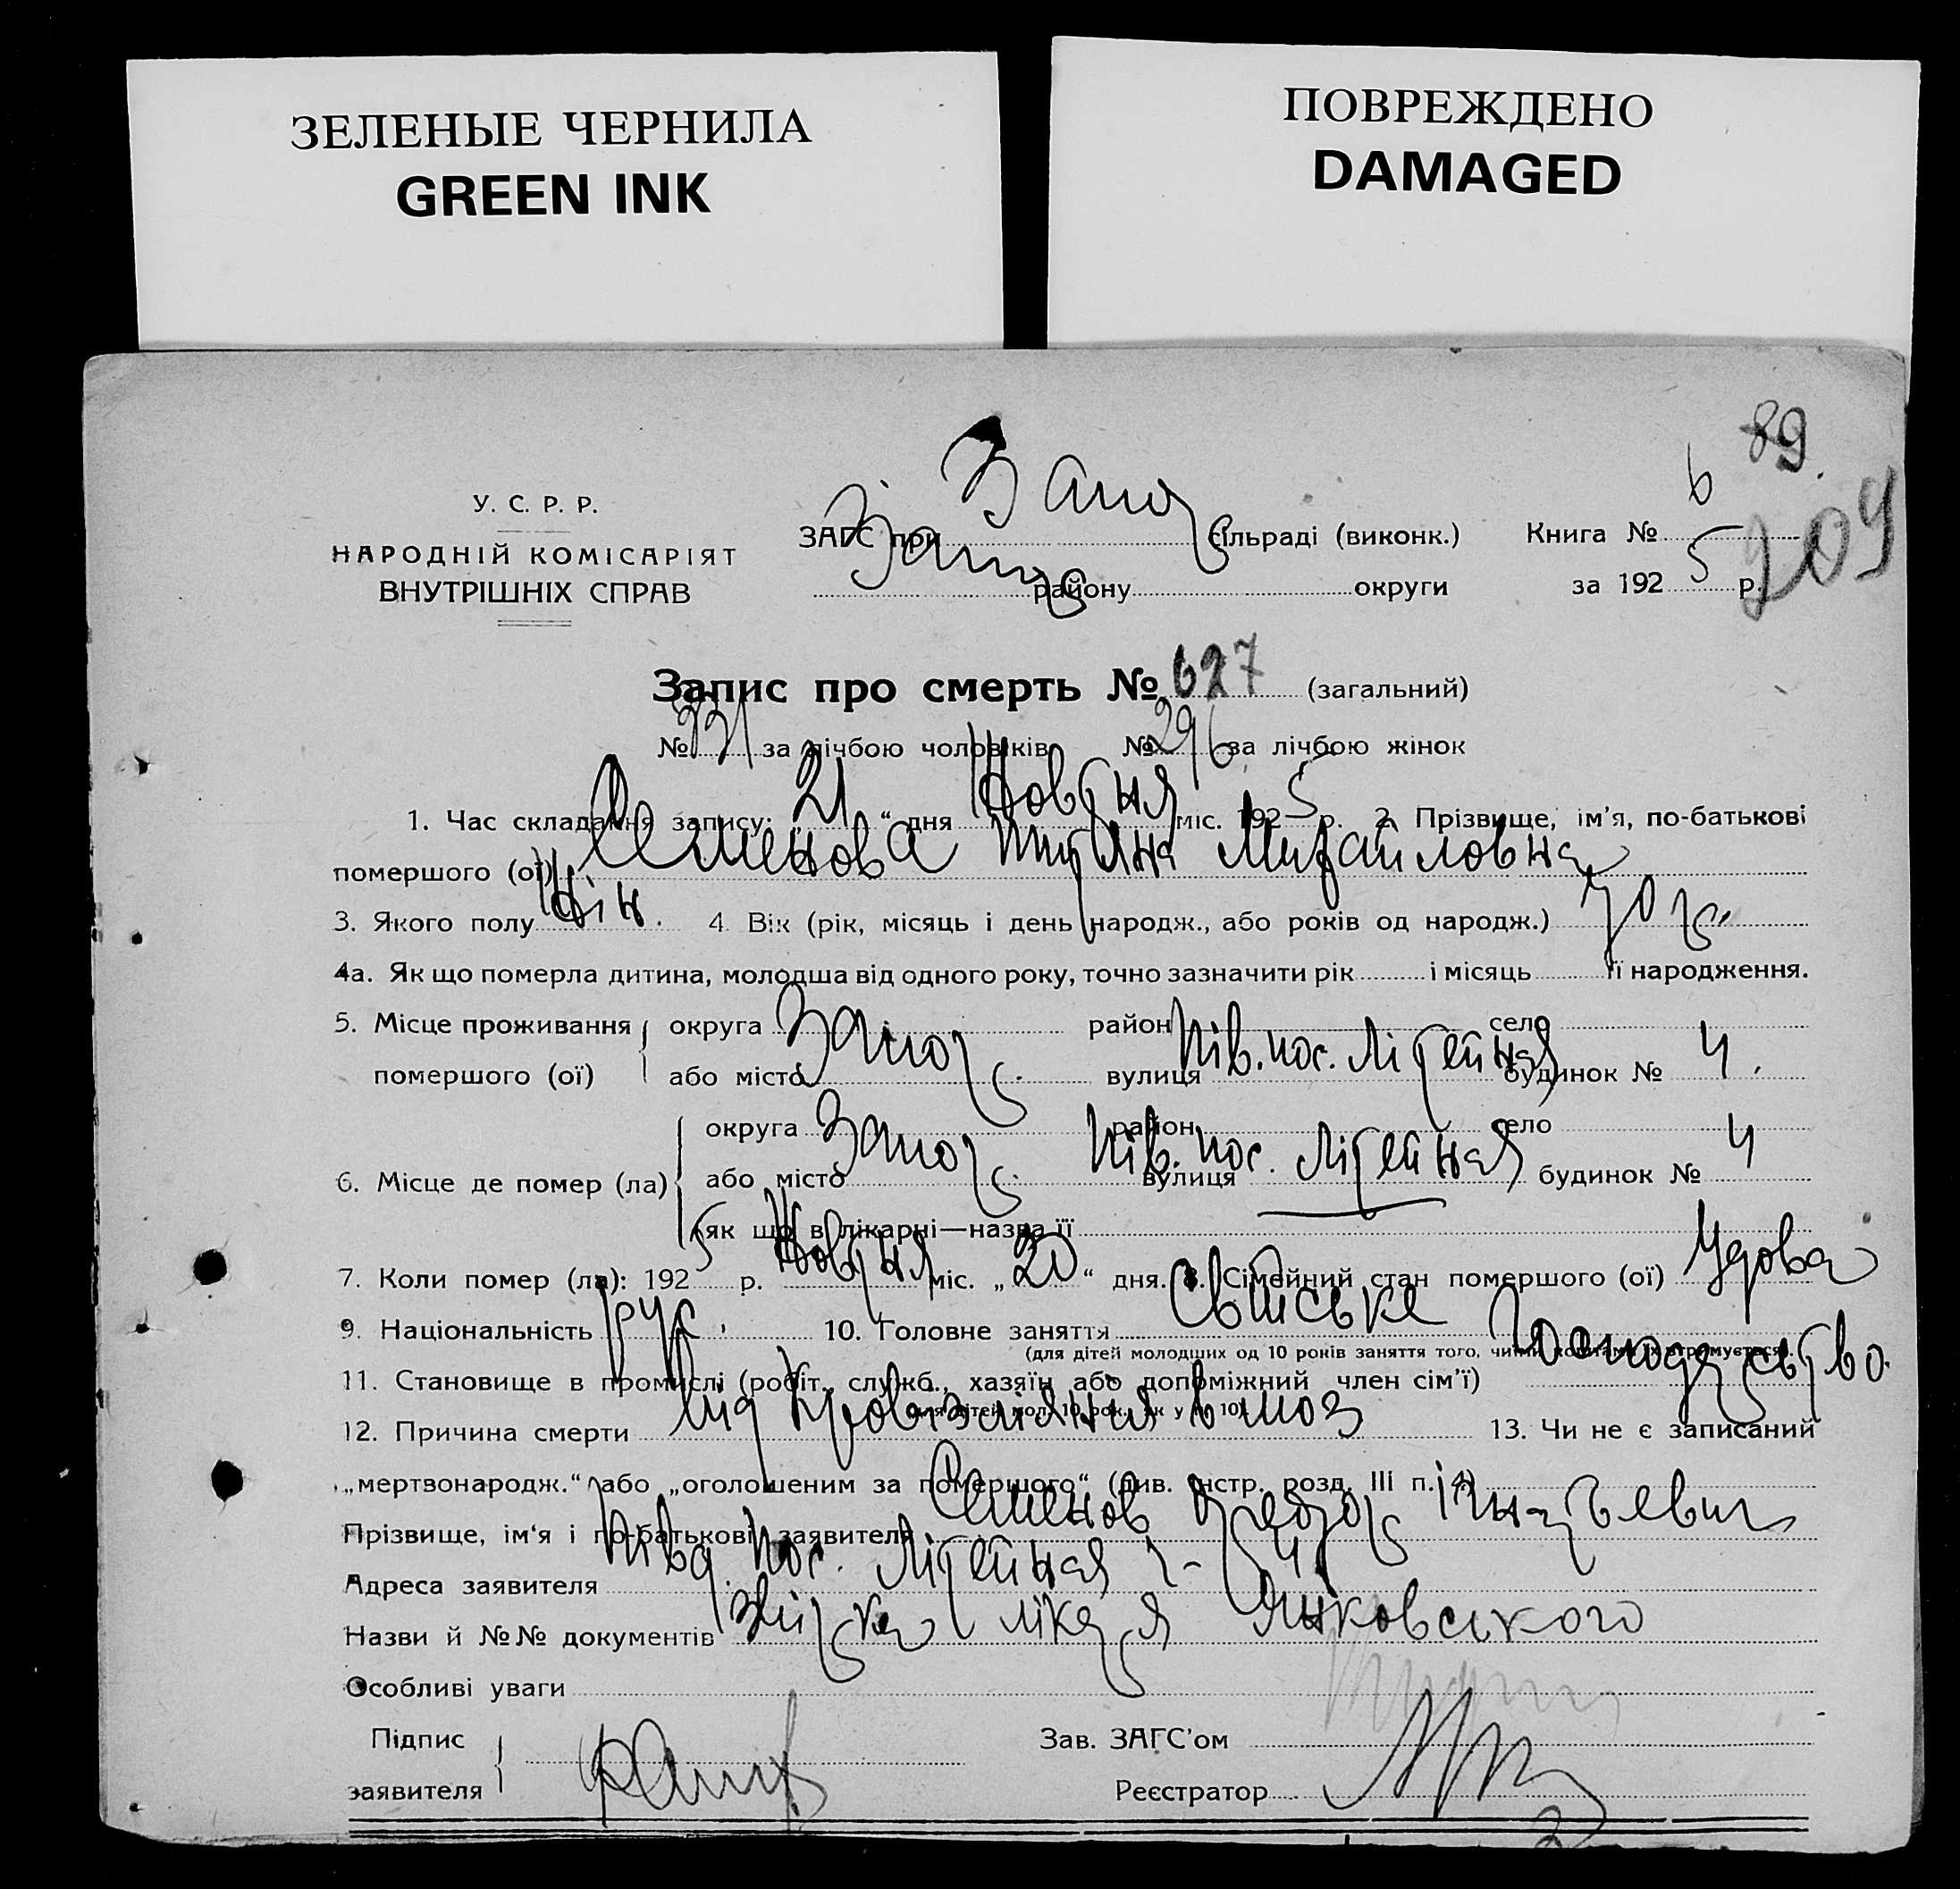 ЗЕЛЕНЫЕ ЧЕРНИЛА
GREEN INK
ПОВРЕЖДЕНО
DAMAGED
89.
209
У. С. Р. Р.
НАРОДНІЙ КОМІСАРІЯТ
ВНУТРІШНІХ СПРАВ
ЗАГС при Запор сільраді (виконк.)
Запор району округи
Книга № 6
за 1925 р.
Запис про смерть № 627 (загальний)
№ 331 за лічбою чоловіків № 296 за лічбою жінок
1. Час складання запису: „21“ дня Жовтня міс. 1925 р. 2. Прізвище, ім'я, по-батькові
помершого (ої) Семенова Татяна Михайловна
3. Якого полу Жін. 4. Вік (рік, місяць і день народж., або років од народж.) 70 р.
4а. Як що померла дитина, молодша від одного року, точно зазначити рік і місяць її народження.
5. Місце проживання помершого (ої) округа район село
або місто Запор. вулиця Пів. пос. Літейная будинок № 4.
6. Місце де помер (ла) округа район село
або місто Запор. вулиця Пів. пос. Літейная будинок № 4
як що в лікарні—назва її
7. Коли помер (ла): 1925 р. Жовтня міс. „20“ дня. 8. Сімейний стан помершого (ої) Удова
9. Національність рус. 10. Головне заняття Господарство.
(для дітей молодших од 10 років заняття того, чиїми коштами їх втримується).
11. Становище в промислі (робіт., служб., хазяїн або допоміжний член сім'ї)
(для дітей мол. 10 рок. як у п. 10)
12. Причина смерти Від в моз 13. Чи не є записаний
„мертвонародж.“ або „оголошеним за помершого“ (див. інстр. розд. III п. 4)
Прізвище, ім'я і по-батькові заявителя Семенов Федор
Адреса заявителя Півд. пос. Літейная 4
Назви й №№ документів лікаря Янковського
Особливі уваги
Підпис заявителя
Зав. ЗАГС'ом
Реєстратор